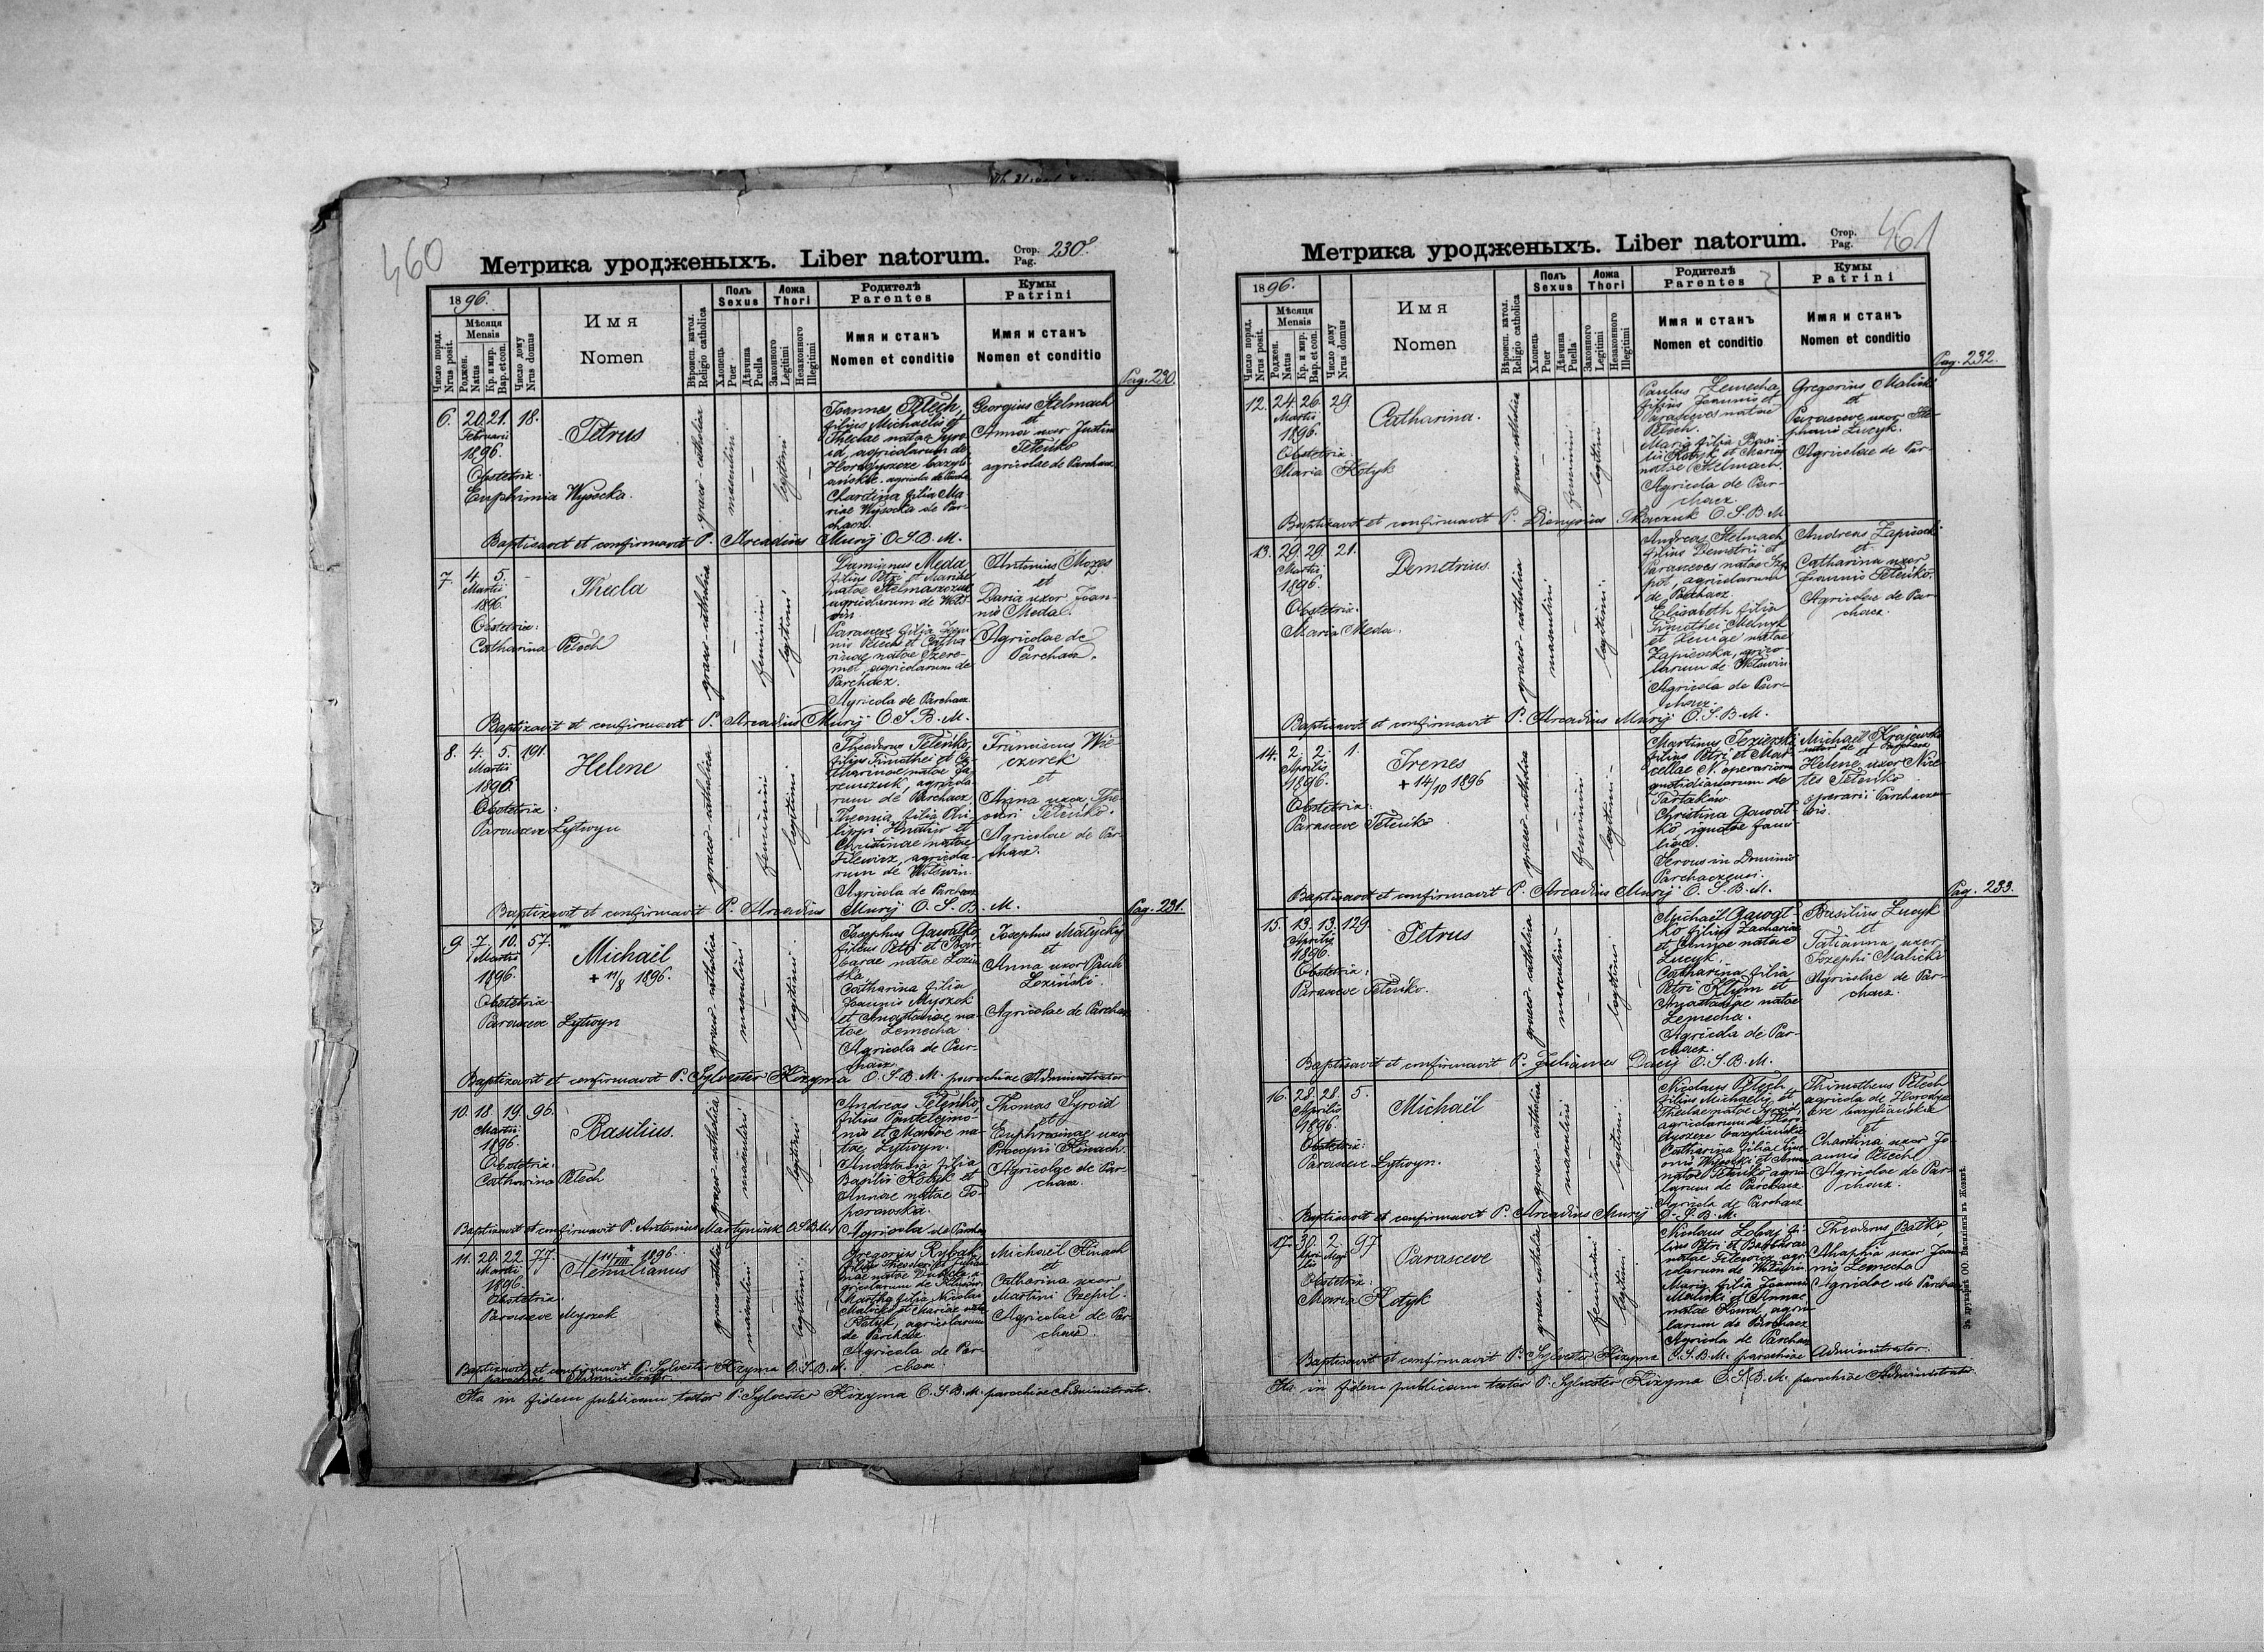 460
Метрика уродженыхъ. Liber natorum.
Стор.
Pag.
230
1896.
Число поряд.
Nrus posit.
Мѣсяця
Mensis
Роджен.
Natus
Кр. и мир.
Bap. et con.
Число дому
Nrus domus
Имя
Nomen
Вѣроисп. катол.
Religio catholica
Полъ
Sexus
Хлопець
Puer
Дѣвчина
Puella
Ложа
Thori
Законного
Legitimi
Незаконного
Illegitimi
Родителѣ
Parentes
Имя и станъ
Nomen et conditio
Кумы
Patrini
Имя и станъ
Nomen et conditio
Pag. 230
6. 20. 21. 18.
Februarii
1896.
Obstetrix
Euphimia Wysocka.
Petrus
graeco-catholica
masculini
legitimi
Joannes Petech,
filius Michaelis et
Theclae natae
agricolarum de
agricola de
filia Ma-
riae Wysocka de Par-
chacz.
Georgius Stelmach
et
Anna uxor Justini
Teteńko
agricolae de Parchacz
Baptizavit et confirmavit P. Arcadius Muryj O.S.B.M.
7. 4. 5.
Martii
1896.
Obstetrix:
Catharina Petech
Thecla
graeco-catholica
feminini
legitimi
Damianus Meda
filius Petri et Mariae
natae
agricolarum de
Parasceve filia Joan-
nis Petech et Catha-
rinae natae Szere-
met, agricolarum de
Parchacz.
Agricola de Parchacz
Antonius Mozes
et
Daria uxor Joan-
nis Meda.
Agricolae de
Parchacz.
Baptizavit et confirmavit P. Arcadius Muryj O.S.B.M.
8. 4. 5. 191.
Martii
1896
Obstetrix:
Parasceve Lytwyn
Helene
graeco-catholica
feminini
legitimi
Theodorus Teteńko,
filius Timothei et Ca-
tharinae natae
agricola-
rum de Parchacz.
filia Phi-
lippi Hnatiw et
Christinae natae
Filewicz, agricola-
rum de Wolswin.
Agricola de Parchacz
Franciscus Wie-
czorek
et
Anna uxor
Teteńko.
Agricolae de Par-
chacz.
Baptizavit et confirmavit P. Arcadius Muryj O.S.B.M.
Pag. 231.
9 7. 10. 57.
Martii
1896.
Obstetrix
Parasceve Lytwyn
Michaël
+ 11/8 1896.
graeco-catholica
masculini
legitimi
Josephus Gawatko
filius Petri et Bar-
barae natae Lozin-
ska.
Catharina filia
Joannis Myszok
et Anastasiae na-
tae Lemecha
Agricola de Par-
chacz.
Josephus Malyckyj
et
Anna uxor Pauli
Loziński.
Agricolae de Parchacz
Baptizavit et confirmavit P. Sylvester Kizyma O.S.B.M. parochiae Administrator
10. 18. 19. 96.
Martii
1896.
Obstetrix:
Catharina Petech
Basilius.
graeco-catholica
masculini
legitimi
Andreas Teteńko
filius Panteleimo-
nis et Mariae na-
tae Lytwyn.
Anastasia filia
Basilii Kotyk et
Annae natae To-
porowska.
Agricola de Parchacz
Thomas Syroid
et
Euphrosinae uxor
Procopii Kinach.
Agricolae de Par-
chacz.
Baptizavit et confirmavit P. Antonius Martyniuk O.S.B.M.
11. 20. 22. 77.
Martii
1896.
Obstetrix.
Parasceve Myszok
+ 11/VIII 1896.
Aemilianus
graeco-catholica
masculini
legitimi
Gregorius Rybak
filius Theodori et
natae
Martha filia Nicolai
Malicki et Mariae natae
Kotyk, agricolarum
de Parchacz
Agricola de Par-
chacz.
Michaël Kinach
et
Catharina uxor
Martini Czepil.
Agricolae de Par-
chacz.
Baptizavit et confirmavit P. Sylvester Kizyma O.S.B.M.
parochiae Administrator
Ita in fidem publicam testor P. Sylvester Kizyma O.S.B.M. parochiae Administrator.
461
Метрика уродженыхъ. Liber natorum.
Стор.
Pag.
1896.
Число поряд.
Nrus posit.
Мѣсяця
Mensis
Роджен.
Natus
Кр. и мир.
Bap. et con.
Число дому
Nrus domus
Имя
Nomen
Вѣроисп. катол.
Religio catholica
Полъ
Sexus
Хлопець
Puer
Дѣвчина
Puella
Ложа
Thori
Законного
Legitimi
Незаконного
Illegitimi
Родителѣ
Parentes
Имя и станъ
Nomen et conditio
Кумы
Patrini
Имя и станъ
Nomen et conditio
Pag. 232.
12. 24. 26. 29
Martii
1896.
Obstetrix
Maria Kotyk
Catharina.
graeco-catholica
feminini
legitimi
Paulus Lemecha,
filius Joannis et
Parasceves natae
Petech.
Maria filia Basi-
lii Kotyk et Mariae
natae Stelmach.
Agricola de Par-
chacz.
Gregorius Malicki
et
Parasceve uxor Ste-
phani Lucyk.
Agricolae de Par-
Baptizavit et confirmavit P. Dionysius Tkaczuk O.S.B.M
13. 29. 29. 21.
Martii
1896.
Obstetrix.
Maria Meda.
Demetrius.
graeco-catholica
masculini
legitimi.
Andreas Stelmach
filius Demetrii et
Parasceves natae
agricolarum
de Parchacz.
Elisabeth filia
Timothei Melnyk
et natae
Zapisocka, agrico-
larum de Wolswin
Agricola de Par-
chacz.
Andreas Zapisocki
et
Catharina uxor
Joannis Teteńko.
Agricolae de Par-
chacz.
Baptizavit et confirmavit P. Arcadius Muryj O.S.B.M.
14. 2. 2. 1.
Aprilis
1896.
Obstetrix:
Parasceve Teteńko
Irenes
+ 14/10 1896
graeco-catholica
feminini
legitimi
Martinus Jezierski
filius Petri et Mar-
cellae N. operariorum
quotidianorum de
Tartaków
Christina Gawat-
ko ignotae fami-
liae.
Servus in Dominio
Parchaczensi.
Michaël Krajewski
et
Helene uxor Nice-
tes Teteńko
operarii Parchaczen-
sis.
Baptizavit et confirmavit P. Arcadius Muryj O.S.B.M.
Pag. 233.
15. 13. 13. 129
Aprilis
1896.
Obstetrix:
Parasceve Teteńko.
Petrus
graeco-catholica
masculini
legitimi
Michaël Gawat-
ko filius Zachariae
et Annae natae
Lucyk.
Catharina filia
Petri Klym et
Anastasiae natae
Lemecha.
Agricola de Par-
chacz.
Basilius Lucyk
et
Tatianna uxor
Josephi Malicki
Agricolae de Par-
chacz.
Baptizavit et confirmavit P. Julianus Dacij O.S.B.M.
16. 28. 28. 5.
Aprilis
1896.
Obstetrix:
Parasceve Lytwyn.
Michaël
graeco-catholica
masculini
legitimi
Nicolaus Petech
filius Michaelis et
Theclae natae Syroid,
agricolarum de Horo-
dyszcze bazyliańskie
Catharina filia Sime-
onis Wysocki et Annae
natae Teteńko agrico-
larum de Parchacz
Agricola de Parchacz
Thimotheus Petech
agricola de Horodysz-
cze bazyliańskie
et
Charitina uxor Jo-
annis Petech
Agricolae de Par-
chacz.
Baptizavit et confirmavit P. Arcadius Muryj O.S.B.M.
17. 30. 2. 97
Apri- Maji
lis
Obstetrix:
Maria Kotyk
Parasceve
graeco-catholica
feminini
legitimi
Nicolaus Lobay fi-
lius Petri et Barbarae
natae Filewicz agri-
colarum de Wolswin
Maria filia Joannis
Malicki et Annae
natae Kowal, agrico-
larum de Parchacz
Agricola de Parchacz
Theodorus Batko,
Ahaphia uxor Joan-
nis Lemecha
Agricolae de Parchacz
Baptizavit et confirmavit P. Sylvester Kizyma O.S.B.M. parochiae Administrator.
Ita in fidem publicam testor P. Sylvester Kizyma O.S.B.M. parochiae Administrator.
Зъ друкарнѣ ОО. Василіянъ въ Жовквѣ.